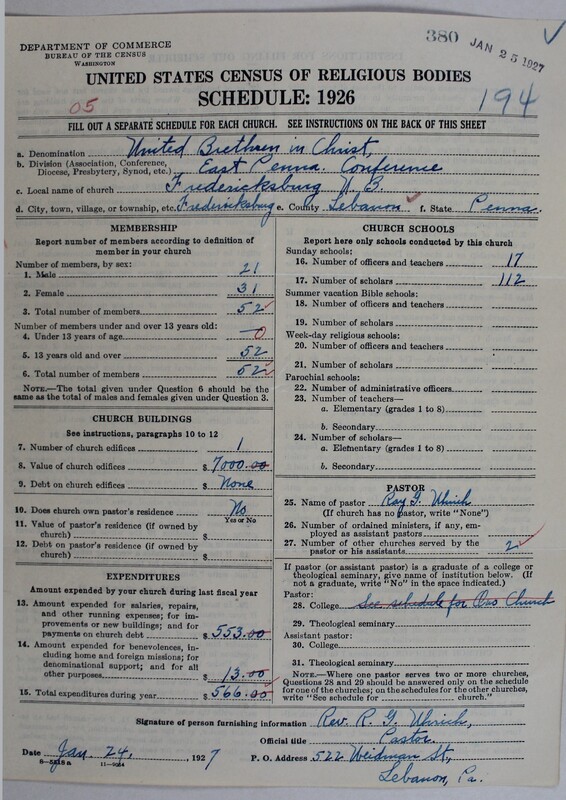 380
JAN 25 1927
DEPARTMENT OF COMMERCE
BUREAU OF THE CENSUS
WASHINGTON
UNITED STATES CENSUS OF RELIGIOUS BODIES
SCHEDULE: 1926
05
194
FILL OUT A SEPARATE SCHEDULE FOR EACH CHURCH. SEE INSTRUCTIONS ON THE BACK OF THIS SHEET
a. Denomination United Brethren in Christ,
b. Division (Association, Conference, Diocese, Presbytery, Synod, etc.) East Penna. Conference
c. Local name of church Fredericksburg U. B.
d. City, town, village, or township, etc. Fredericksburg e. County Lebanon f. State Penna.
MEMBERSHIP
Report number of members according to definition of
member in your church
Number of members, by sex:
1. Male 21
2. Female 31
3. Total number of members 52
Number of members under and over 13 years old:
4. Under 13 years of age 0
5. 13 years old and over 52
6. Total number of members 52
NOTE.—The total given under Question 6 should be
same as the total of males and females given under Question 3.
CHURCH BUILDINGS
See instructions, paragraphs 10 to 12
7. Number of church edifices 1
8. Value of church edifices $ 7000.00
9. Debt on church edifices $ None
10. Does church own pastor's residence? No
Yes or No
11. Value of pastor's residence (if owned by
church) $
12. Debt on pastor's residence (if owned by
church) $
EXPENDITURES
Amount expended by your church during last fiscal year
13. Amount expended for salaries, repairs,
and other running expenses; for im-
provements or new buildings; and for
payments on church debt $ 553.00
14. Amount expended for benevolences, in-
cluding home and foreign missions; for
denominational support; and for all
other purposes 13.00
15. Total expenditures during year $ 566.00
CHURCH SCHOOLS
Report here only schools conducted by this church
Sunday schools:
16. Number of officers and teachers 17
17. Number of scholars 112
Summer vacation Bible schools:
18. Number of officers and teachers
19. Number of scholars
Week-day religious schools:
20. Number of officers and teachers
21. Number of scholars
Parochial schools:
22. Number of administrative officers
23. Number of teachers—
a. Elementary (grades 1 to 8)
b. Secondary
24. Number of scholars—
a. Elementary (grades 1 to 8)
b. Secondary
PASTOR
25. Name of pastor Ray G. Uhrich
(If church has no pastor, write "None")
26. Number of ordained ministers, if any, em-
ployed as assistant pastors
27. Number of other churches served by the
pastor or his assistants 2
If pastor (or assistant pastor) is a graduate of a college or
theological seminary, give name of institution below. (If
not a graduate, write "No" in the space indicated.)
Pastor:
28. College See schedule for Ono Church
29. Theological seminary
Assistant pastor:
30. College
31. Theological seminary
NOTE.—Where one pastor serves two or more churches,
Questions 28 and 29 should be answered only on the schedule
for one of the churches; on the schedules for the other churches,
write "See schedule for church."
Signature of person furnishing information Rev. R. G. Uhrich,
Official title Pastor.
Date Jan. 24, 1927
P. O. Address 522 Weidman St.,
Lebanon, Pa.